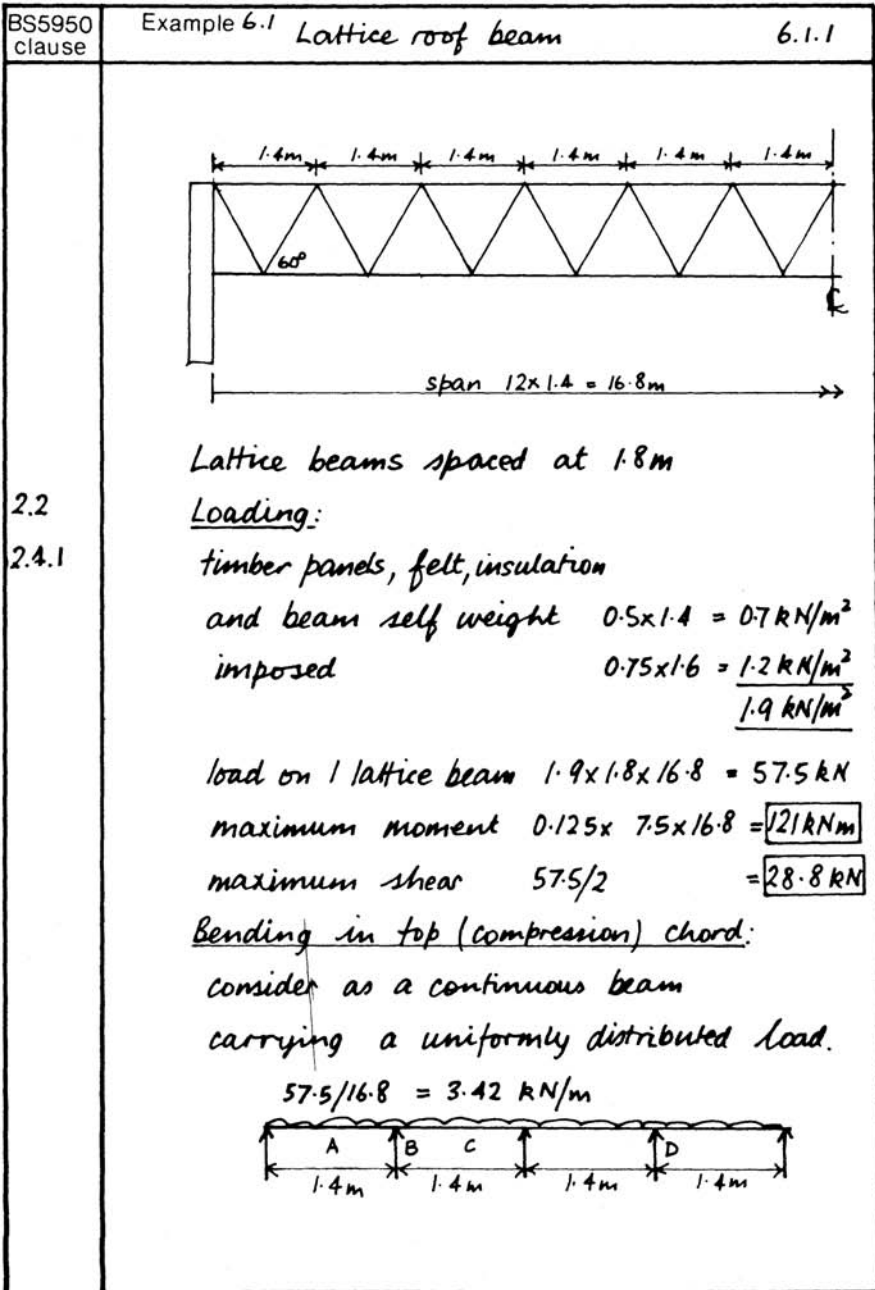 BS5950 clause
Example 6.1 Lattice roof beam 6.1.1
1.4m 1.4m 1.4m 1.4m 1.4m 1.4m
60°
℄
span 12x1.4 = 16.8m
Lattice beams spaced at 1.8m
2.2 Loading:
2.4.1 timber panels, felt, insulation
and beam self weight 0.5x1.4 = 0.7 kN/m²
imposed 0.75x1.6 = 1.2 kN/m²
1.9 kN/m²
load on 1 lattice beam 1.9x1.8x16.8 = 57.5 kN
maximum moment 0.125x 7.5x16.8 = 121kNm
maximum shear 57.5/2 = 28.8 kN
Bending in top (compression) chord:
consider as a continuous beam
carrying a uniformly distributed load.
57.5/16.8 = 3.42 kN/m
A B C D
1.4m 1.4m 1.4m 1.4m